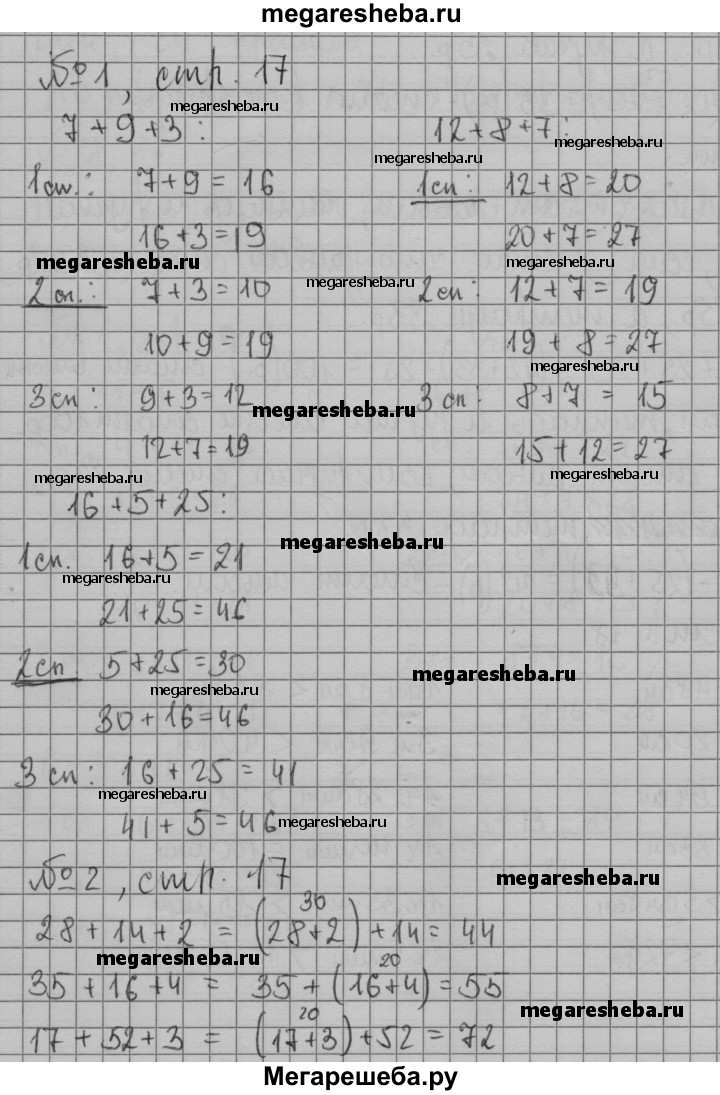 megaresheba.ru
№1, стр. 17
megaresheba.ru
7+9+3:
12+8+7:
megaresheba.ru
megaresheba.ru
1сп.: 7+9=16
16+3=19
1сп: 12+8=20
20+7=27
megaresheba.ru
megaresheba.ru
megaresheba.ru
2сп.: 7+3=10
10+9=19
2сп: 12+7=19
19+8=27
megaresheba.ru
3сп: 9+3=12
12+7=19
megaresheba.ru
3сп: 8+7=15
15+12=27
megaresheba.ru
megaresheba.ru
16+5+25:
megaresheba.ru
1сп. 16+5=21
megaresheba.ru
21+25=46
2сп 5+25=30
megaresheba.ru
megaresheba.ru
30+16=46
3сп: 16+25=41
megaresheba.ru
41+5=46
megaresheba.ru
№2, стр. 17
megaresheba.ru
30
28+14+2=(28+2)+14=44
megaresheba.ru
20
35+16+4=35+(16+4)=55
megaresheba.ru
20
17+52+3=(17+3)+52=72
Мегарешеба.ру